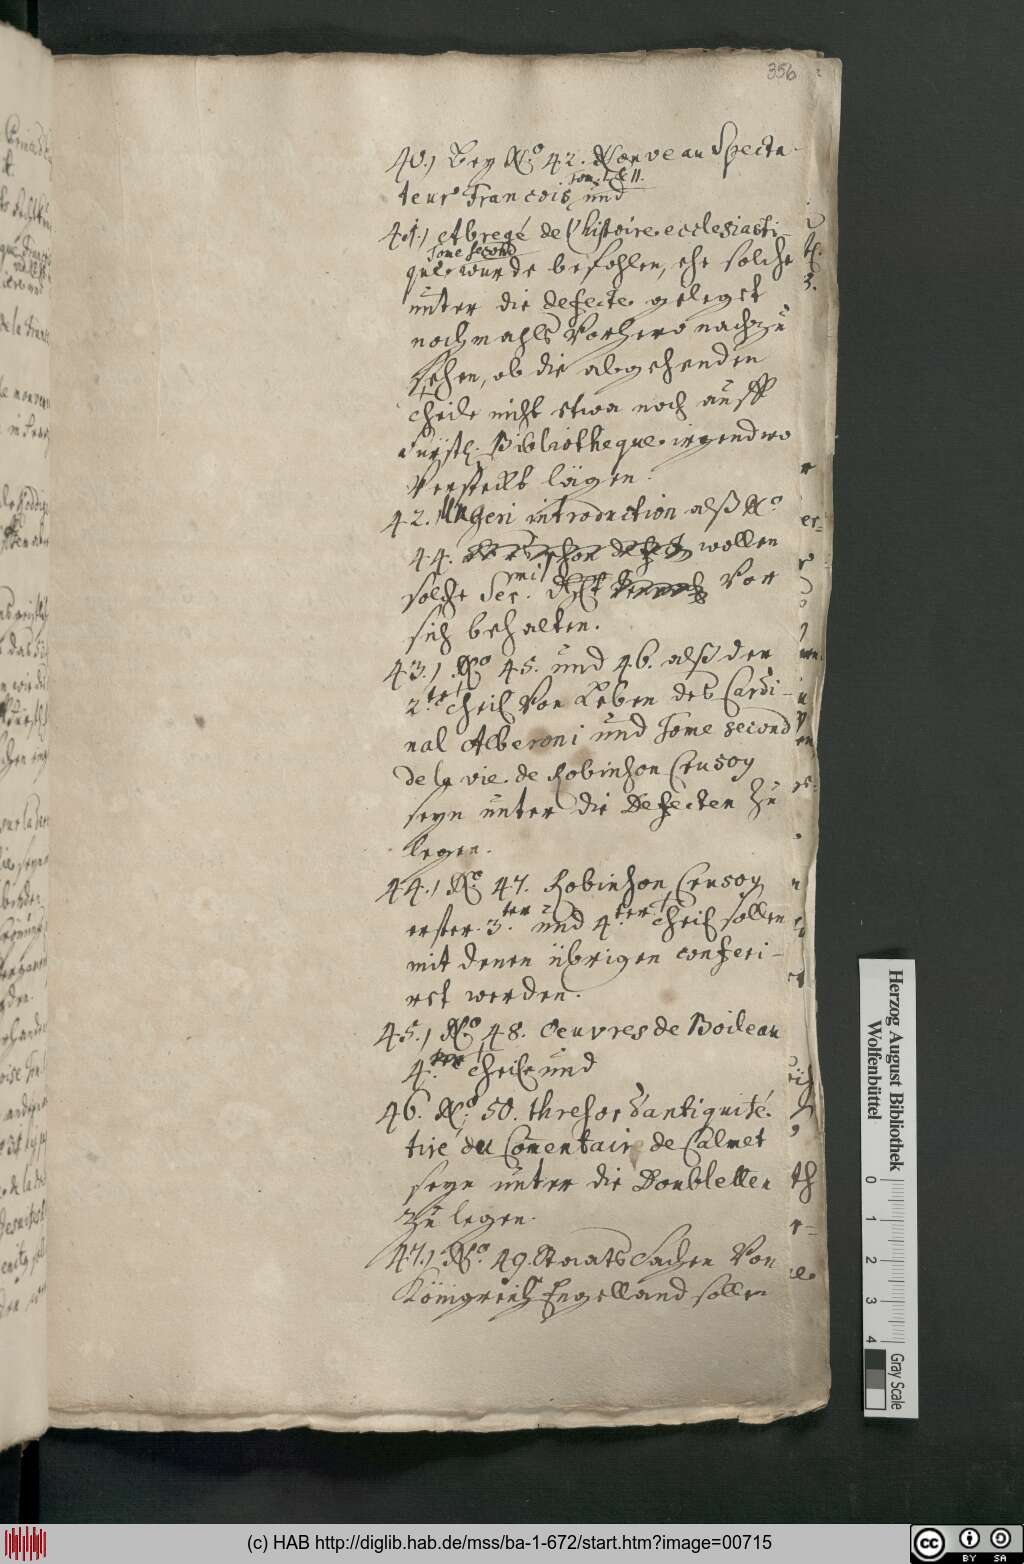 356
40.) Bey No. 42. Nouveau Specta-
teur Francois Tom. I. & II. und
41.) Abregé de l'histoire ecclesiasti-
que Tome second wurde befohlen, ehe solche
unter die defecte geleget
nochmahls vorhero nachzu
sehen, ob die abgehenden
Theile nicht etwa noch auff
Fürstl. Bibliotheque irgendwo
versteckt lägen.
42. Ungeri introduction alß No.
44. wollen
solche Ser. mi vor
sich behalten.
43.) No. 45. und 46. alß der
2.te Theil von Leben des Cardi-
nal Alberoni und Tome second
de la vie de Robinson Crusoy
seyn unter die Defecten zu
legen.
44.) No. 47. Robinson Crusoy
erster 3.ter und 4.ter Theil sollen
mit denen übrigen conferi-
ret werden.
45.) No. 48. Oeuvres de Boileau
4.ter Theile und
46. No. 50. thresor d'antiquité
tiré du Comentaire de Calmet
seyn unter die Doubletten
zu legen.
47.) No. 49. Staats Sachen von
Königreich Engelland sollen
Herzog August Bibliothek
Wolfenbüttel
0 1 2 3 4
Gray Scale
(c) HAB http://diglib.hab.de/mss/ba-1-672/start.htm?image=00715
cc BY SA